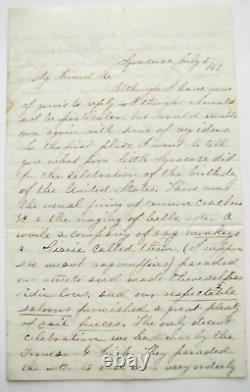 Syracuse July 6
My Friend
Although I have none
of yours to reply I thought I would
not be particular, but would trouble
you again with some of my ideas.
In the first place I want to tell
you what poor little Syracuse did
for the celebration of the birthday
of the United States. There was
the usual firing of common crackers
&c & the ringing of bells, after a
while a company of rag monkeys
as called them (I suppose
she meant ragmuffins) paraded
our streets and made themselves
ridiculous, and our respectable
saloons furnished a great plenty
of fences. The only decent
celebration we had was by the
They paraded
our streets and very orderly